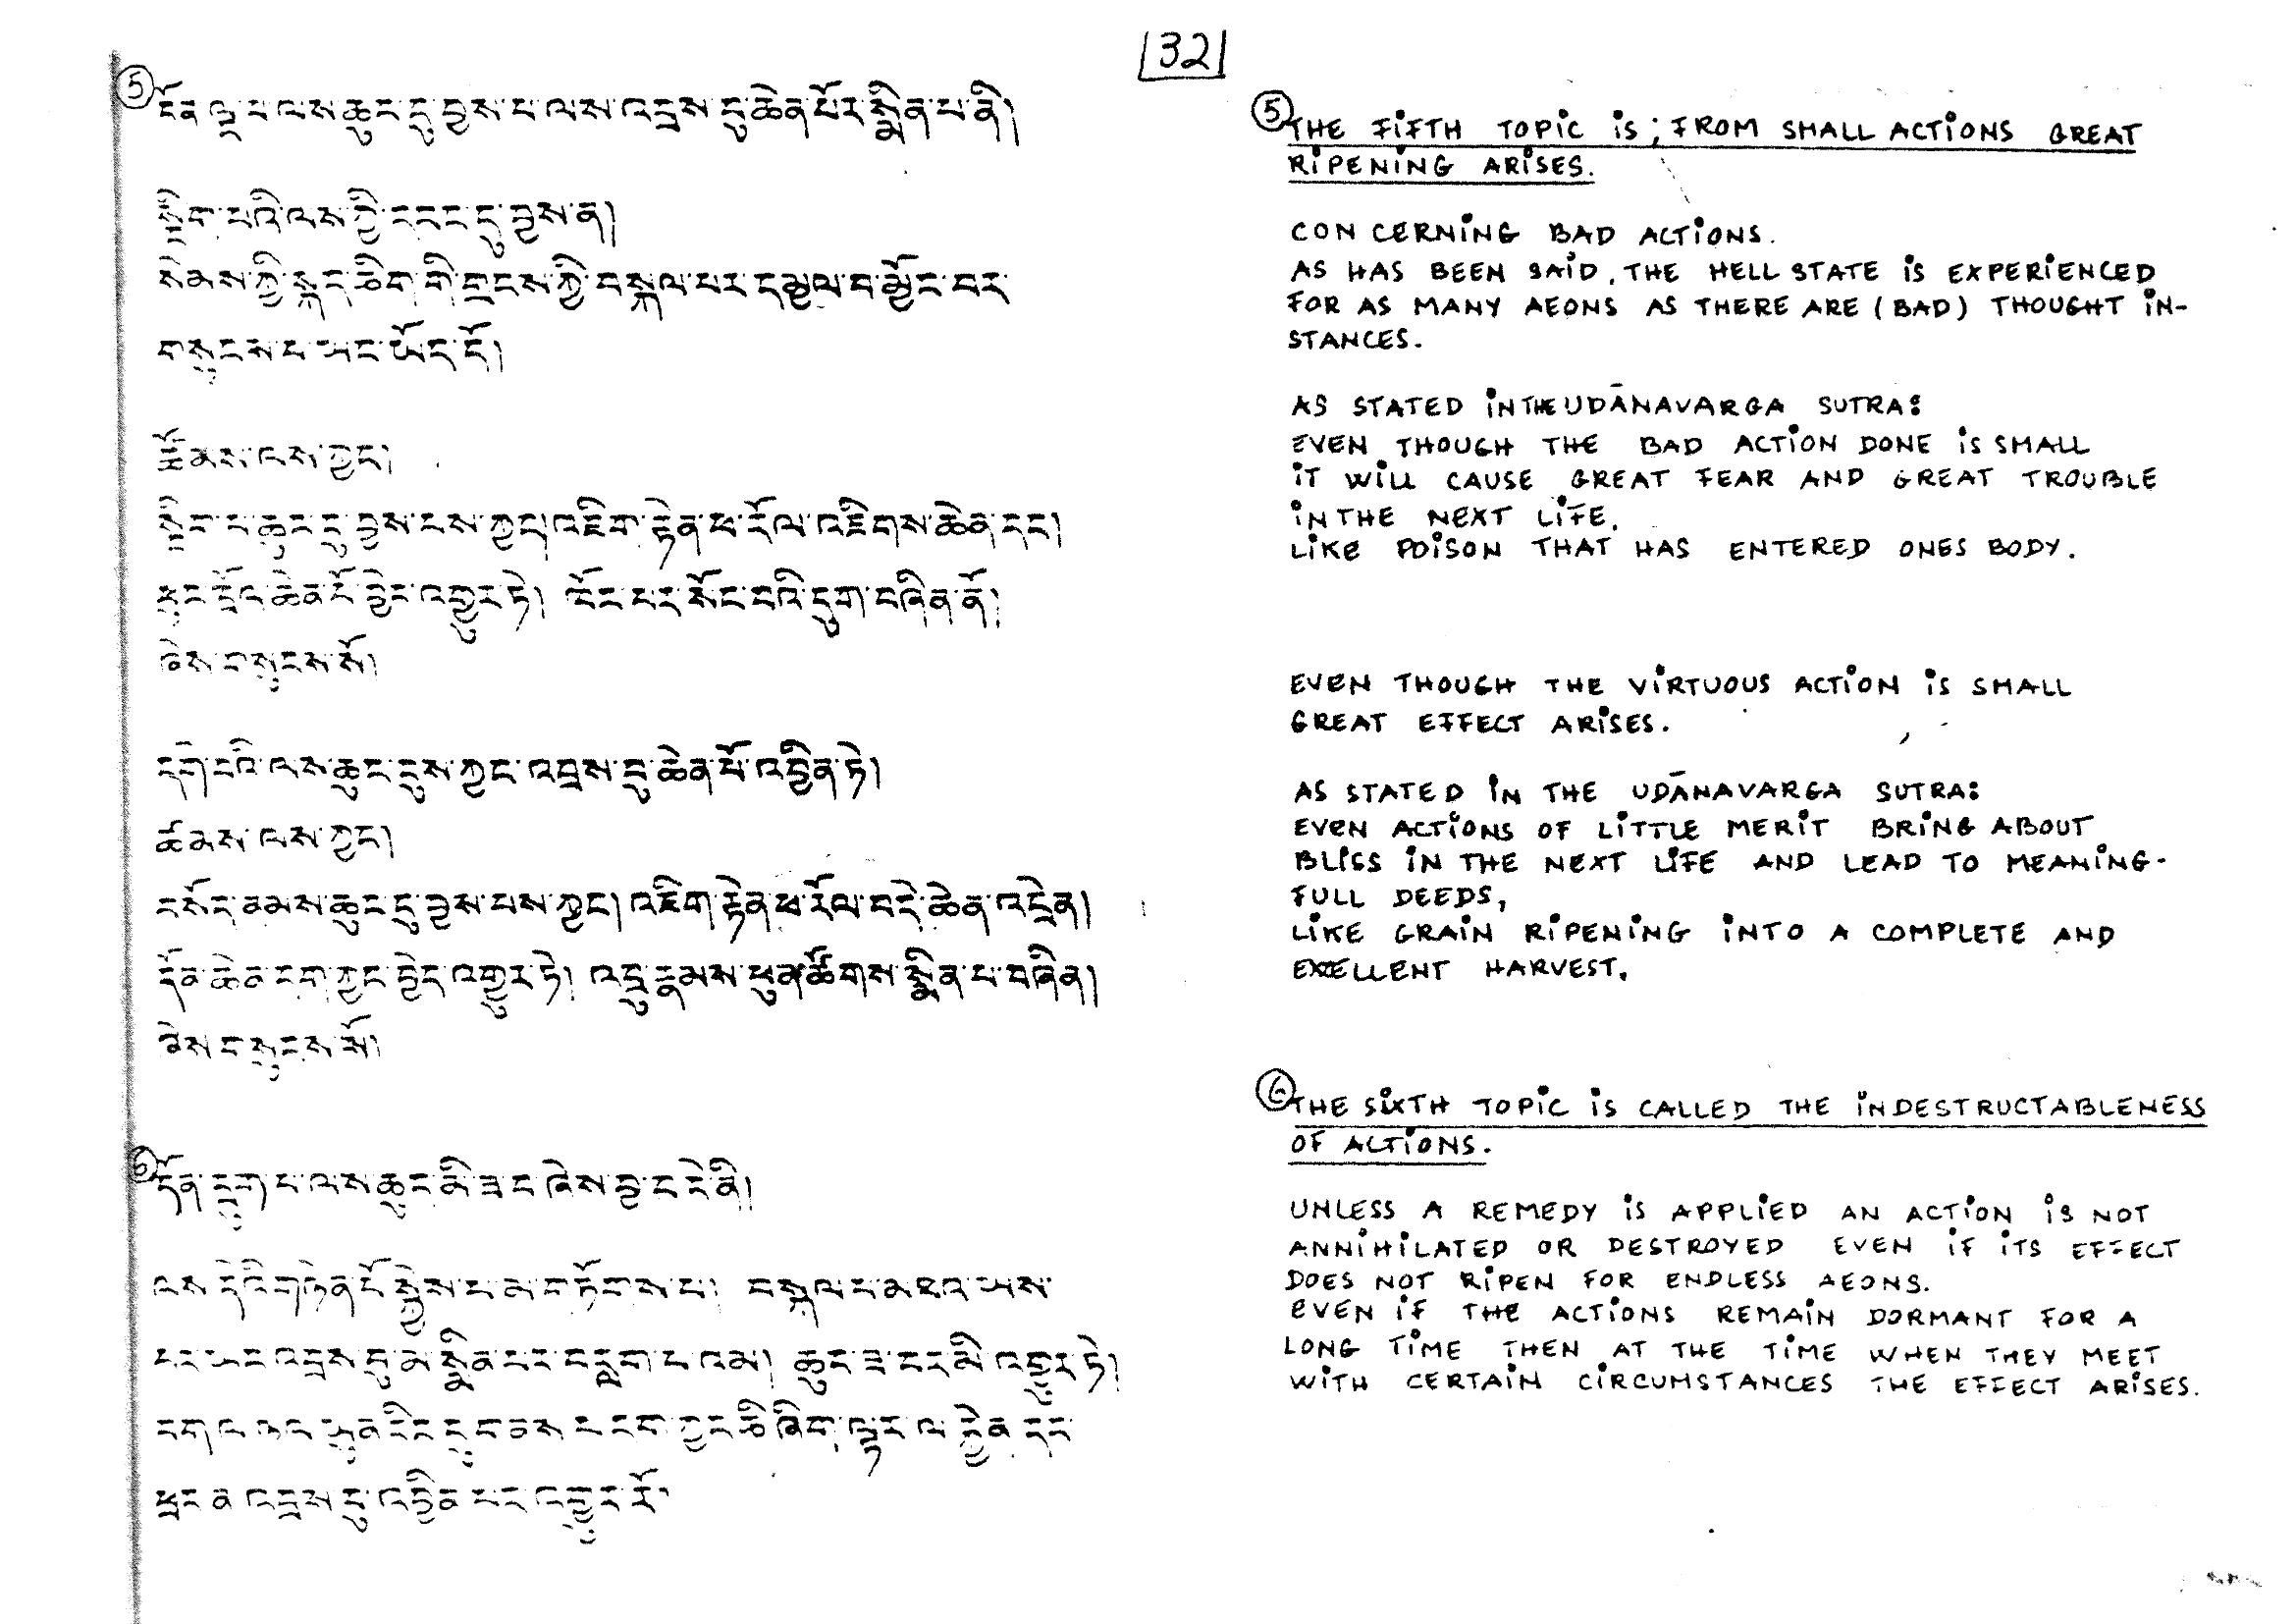 132
⑤ དོན་ལྔ་པ་ལས་ཆུང་དུ་བྱས་པ་ལས་འབྲས་བུ་ཆེན་པོར་སྨིན་པ་ནི།
སྡིག་པའི་ལས་ཀྱི་དབང་དུ་བྱས་ན།
སེམས་ཀྱི་སྐད་ཅིག་གི་གྲངས་ཀྱི་བསྐལ་པར་དམྱལ་བ་མྱོང་བར་
གསུངས་པ་ཡང་ཡོད་དོ།
ཚོམས་ལས་ཀྱང་།
སྡིག་པ་ཆུང་ངུ་བྱས་པས་ཀྱང་། འཇིག་རྟེན་ཕ་རོལ་འཇིགས་ཆེན་དང་།
ཕུང་ཁྲོལ་ཆེན་པོ་བྱེད་འགྱུར་ཏེ། ཁོང་པར་སོང་བའི་དུག་བཞིན་ནོ།
ཞེས་གསུངས་སོ།
དགེ་བའི་ལས་ཆུང་ངུས་ཀྱང་འབྲས་བུ་ཆེན་པོ་འབྱིན་ཏེ།
ཚོམས་ལས་ཀྱང་།
བསོད་ནམས་ཆུང་ངུ་བྱས་པས་ཀྱང་། འཇིག་རྟེན་ཕ་རོལ་བདེ་ཆེན་འདྲེན།
དོན་ཆེན་དག་ཀྱང་བྱེད་འགྱུར་ཏེ། འབྲུ་རྣམས་ཕུན་ཚོགས་སྨིན་པ་བཞིན།
ཞེས་གསུངས་སོ།
⑥ དོན་དྲུག་པ་ལས་ཆུད་མི་ཟ་བ་ཞེས་བྱ་བ་ནི།
ལས་དེའི་གཉེན་པོ་སྐྱེས་པ་མ་གཏོགས་པ། བསྐལ་པ་མཐའ་ཡས་
པར་ཡང་འབྲས་བུ་མ་སྨིན་པར་བརླག་པ་འམ། ཆུད་ཟ་བར་མི་འགྱུར་ཏེ།
བག་ལ་ཉལ་ཡུན་རིང་དུ་གནས་པ་དག་ཀྱང་ཅི་ཞིག་ལྟར་ལ་རྐྱེན་དང་
ཕྲད་ན་འབྲས་བུ་འབྱིན་པར་འགྱུར་རོ།
⑤ THE FIFTH TOPIC IS; FROM SMALL ACTIONS GREAT
RIPENING ARISES.
CONCERNING BAD ACTIONS.
AS HAS BEEN SAID, THE HELL STATE IS EXPERIENCED
FOR AS MANY AEONS AS THERE ARE (BAD) THOUGHT IN-
STANCES.
AS STATED IN THE UDĀNAVARGA SUTRA:
EVEN THOUGH THE BAD ACTION DONE IS SMALL
IT WILL CAUSE GREAT FEAR AND GREAT TROUBLE
IN THE NEXT LIFE,
LIKE POISON THAT HAS ENTERED ONES BODY.
EVEN THOUGH THE VIRTUOUS ACTION IS SMALL
GREAT EFFECT ARISES.
AS STATED IN THE UDĀNAVARGA SUTRA:
EVEN ACTIONS OF LITTLE MERIT BRING ABOUT
BLISS IN THE NEXT LIFE AND LEAD TO MEANING-
FULL DEEDS,
LIKE GRAIN RIPENING INTO A COMPLETE AND
EXCELLENT HARVEST.
⑥ THE SIXTH TOPIC IS CALLED THE INDESTRUCTABLENESS
OF ACTIONS.
UNLESS A REMEDY IS APPLIED AN ACTION IS NOT
ANNIHILATED OR DESTROYED EVEN IF ITS EFFECT
DOES NOT RIPEN FOR ENDLESS AEONS.
EVEN IF THE ACTIONS REMAIN DORMANT FOR A
LONG TIME THEN AT THE TIME WHEN THEY MEET
WITH CERTAIN CIRCUMSTANCES THE EFFECT ARISES.